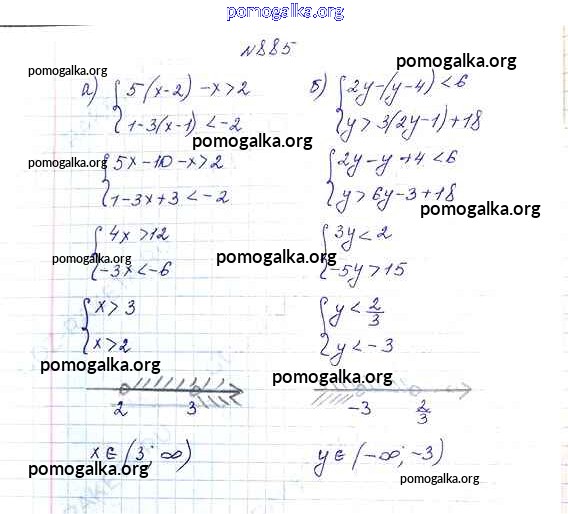 pomogalka.org
№885
pomogalka.org
pomogalka.org
а) { 5(x-2) - x > 2
1-3(x-1) < -2
б) { 2y-(y-4) < 6
y > 3(2y-1)+18
pomogalka.org
pomogalka.org
{ 5x-10-x > 2
1-3x+3 < -2
{ 2y-y+4 < 6
y > 6y-3+18
pomogalka.org
{ 4x > 12
-3x < -6
{ 3y < 2
-5y > 15
pomogalka.org
pomogalka.org
{ x > 3
x > 2
{ y < 2/3
y < -3
pomogalka.org
pomogalka.org
2 3
-3 2/3
x ∈ (3; ∞)
y ∈ (-∞; -3)
pomogalka.org
pomogalka.org